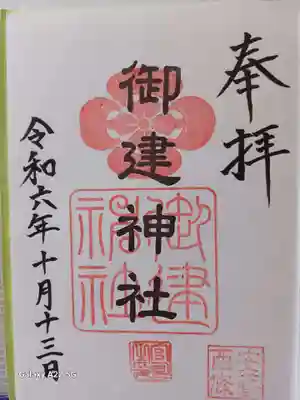 奉拝
御建神社
御建
神社
令和六年十月十三日
Galaxy A22 5G